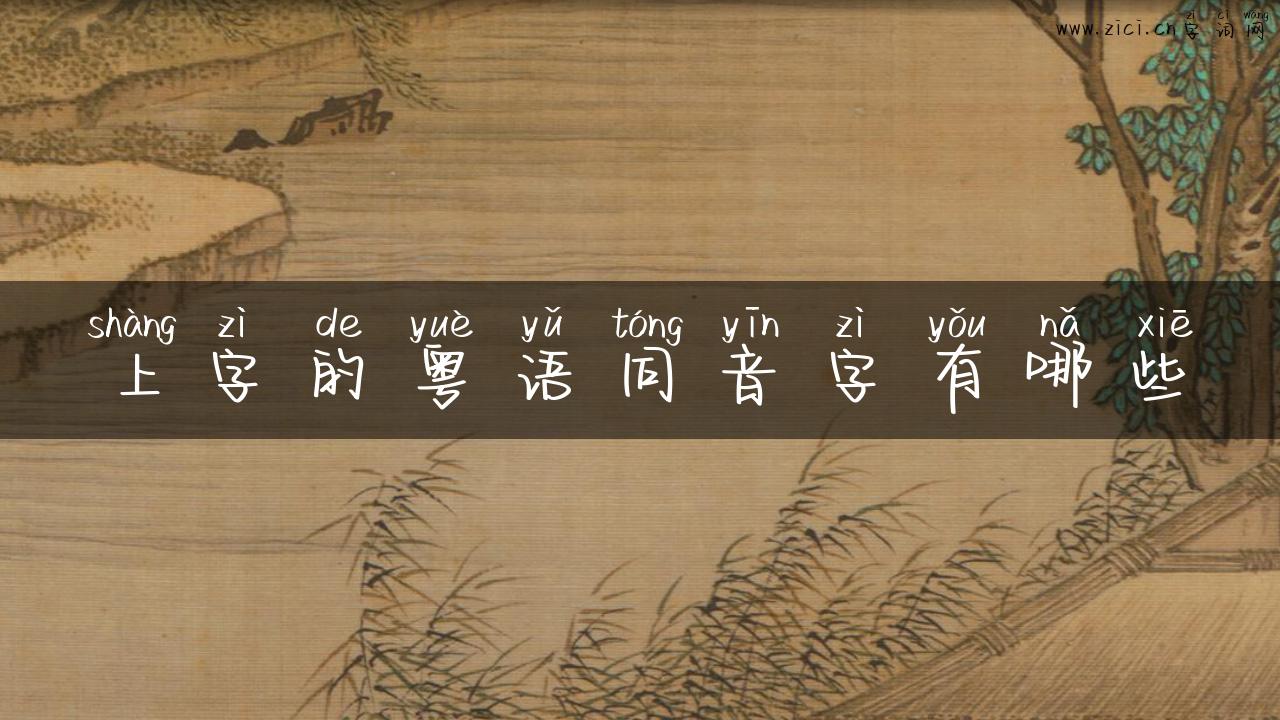 zì cí wǎng
www.zici.cn字词网
shàng zì de yuè yǔ tóng yīn zì yǒu nǎ xiē
上字的粤语同音字有哪些